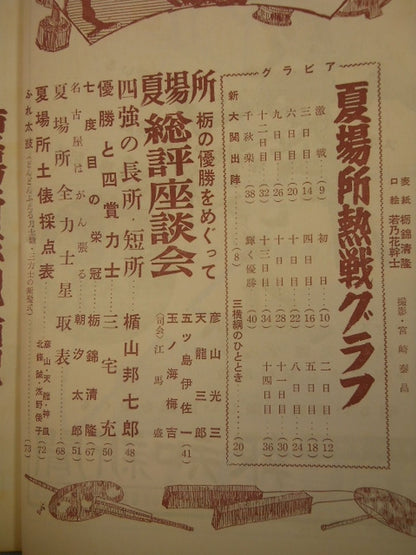 表紙 栃錦清隆
口絵 若乃花幹士
撮影・宮崎泰昌
グラビア
夏場所熱戦グラフ
激戦 (9) 初日 (10) 二日目 (12)
三日目 (14) 四日目 (16) 五日目 (18)
六日目 (20) 七日目 (22) 八日目 (24)
九日目 (26) 十日目 (28) 十一日目 (30)
十二日目 (32) 十三日目 (34) 十四日目 (36)
千秋楽 (38) 輝く優勝 (40)
新大関出陣 (8) 三横綱のひととき (20)
夏場所
栃の優勝をめぐって
総評座談会
彦山光三
天龍三郎
五ツ島伊佐一
玉ノ海梅吉
(司会) 江馬盛 (41)
四強の長所・短所 楯山邦七郎 (48)
優勝と四賞力士 三宅充 (50)
七度目の栄冠 栃錦清隆 (67)
名古屋はがん張る 朝汐太郎 (51)
夏場所全力士星取表 (68)
夏場所土俵採点表 彦山・天龍・神風 北條誠・浅野俊子 (72)
ふれ太鼓 (73)